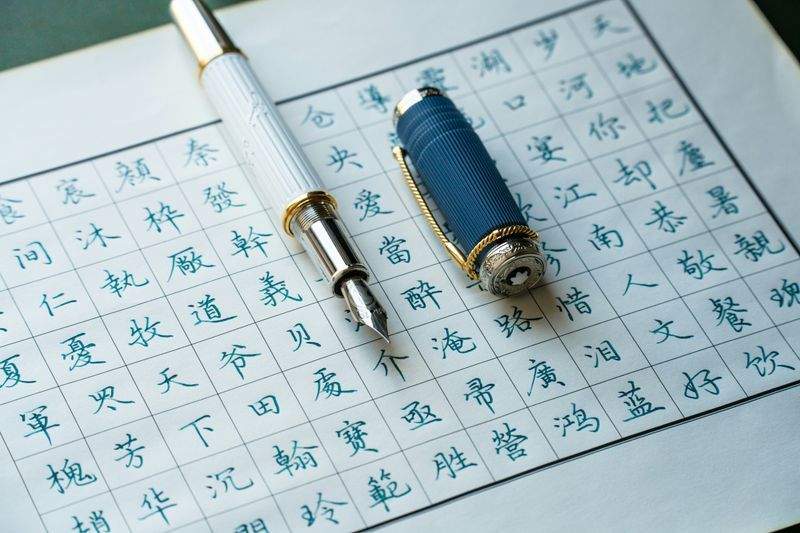 宸 顏 秦 仓 導 靈 湖 岁 天
问 沐 梓 發 央 口 河 地
仁 執 幹 愛 宴 你 把
夏 憂 牧 道 義 當 江 却 塵
軍 天 爷 贝 醉 南 恭 暑
槐 芳 下 田 處 介 淹 路 惜 人 敬 親
华 沉 翰 寶 丞 帚 廣 泪 文 餐
玲 範 胜 營 鸿 蓝 好 饮